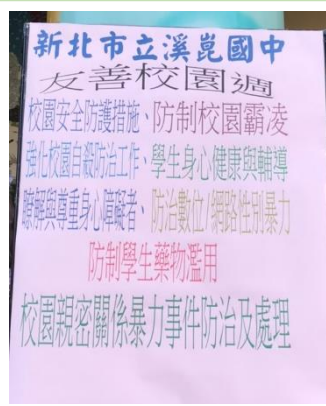 新北市立溪崑國中
友善校園週
校園安全防護措施、防制校園霸凌
強化校園自殺防治工作、學生身心健康與輔導
瞭解與尊重身心障礙者、防治數位/網路性別暴力
防制學生藥物濫用
校園親密關係暴力事件防治及處理